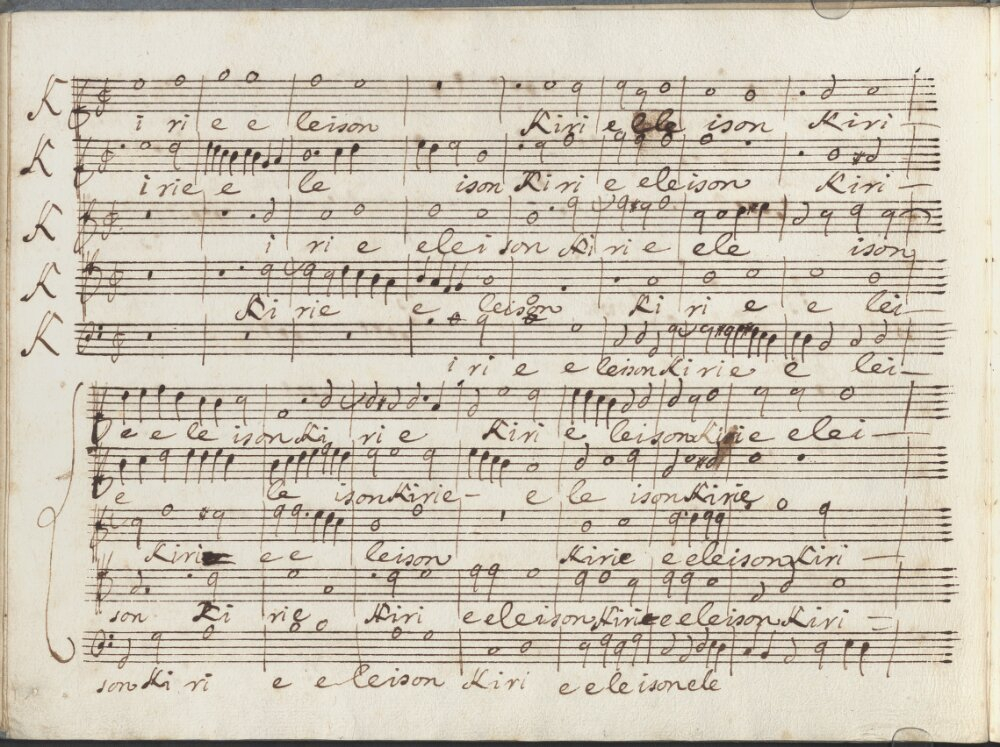 K i ri e e leison Kiri e ele ison Kiri -
K irie e le ison Kiri e eleison Kiri -
K i ri e elei son Kiri e ele ison
K Ki rie e leison Ki ri e e lei -
K i ri e e leison Kirie e lei -
e e le ison Ki ri e Kiri e leison Kirie elei -
e le ison Kirie - e le ison Kirie
Kirie e e leison Kirie e eleison Kiri -
son Ki rie Kiri e eleison Kirie e eleison Kiri -
son Ki ri e e leison Kiri e eleison ele